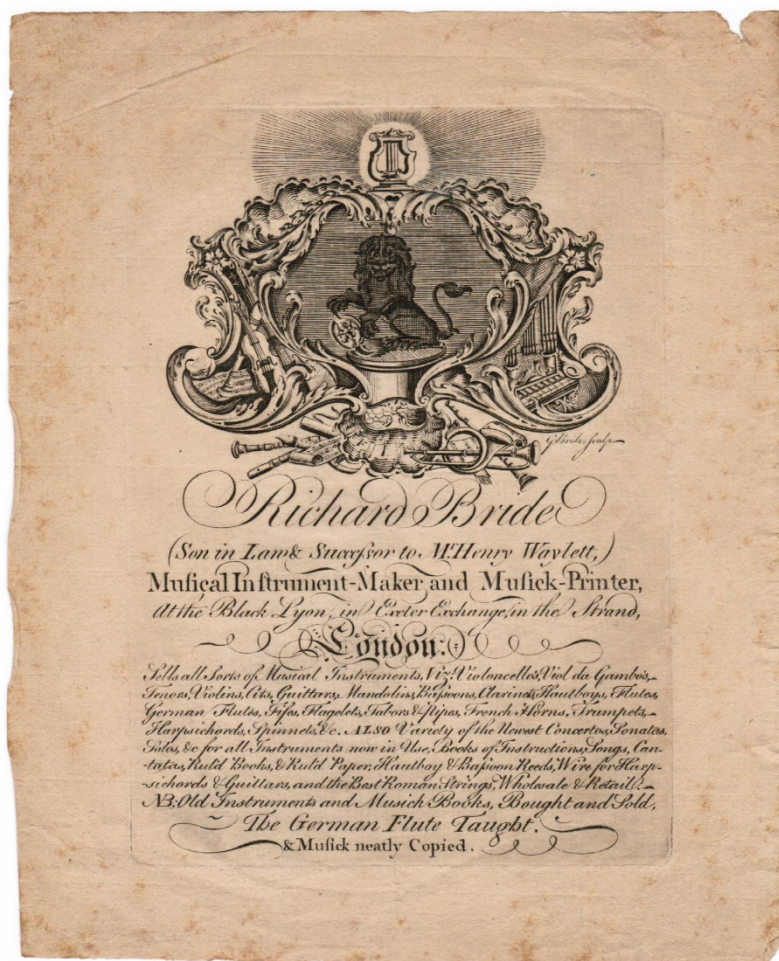 G. Bride sculp
Richard Bride
(Son in Law & Succeſsor to Mr. Henry Waylett,)
Muſical Inſtrument-Maker and Muſick-Printer,
At the Black Lyon, in Exeter Exchange, in the Strand,
London.
Sells all Sorts of Musical Instruments, Viz. Violoncellos, Viol da Gambo's,
Tenors, Violins, Cits, Guittars, Mandolins, Baſsoons, Clarinets, Hautboys, Flutes,
German Flutes, Fifes, Flagelets, Tabors & Pipes, French Horns, Trumpets,
Harpsichords, Spinnets, &c. ALSO Variety of the Newest Concertos, Sonatas,
Solos, &c for all Instruments now in Use, Books of Instructions, Songs, Can-
-tatas, Rul'd Books, & Rul'd Paper, Hautboy & Baſsoon Reeds, Wire for Harp-
-sichords & Guittars, and the Best Roman Strings, Wholesale & Retail.
NB. Old Instruments and Musick Books, Bought and Sold,
The German Flute Taught.
& Muſick neatly Copied.